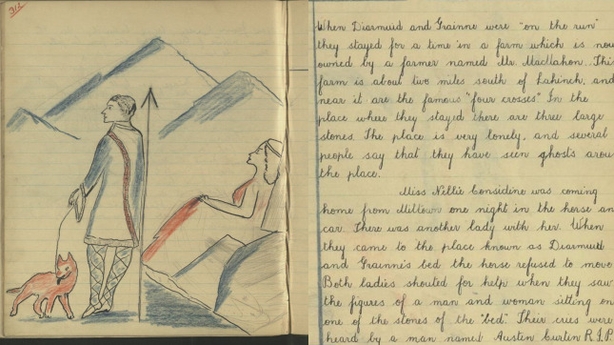 When Diarmuid and Grainne were "on the run"
they stayed for a time in a farm which is now
owned by a farmer named Mr. MacMahon. This
farm is about two miles south of Lahinch, and
near it are the famous "four crosses" In the
place where they stayed there are three large
stones. The place is very lonely, and several
people say that they have seen ghosts aroun
the place.
Miss Nellie Considine was coming
home from Miltown one night in the horse an
car. There was another lady with her. When
they came to the place known as Diarmuid
and Grainne's bed the horse refused to move
Both ladies shouted for help when they saw
the figures of a man and woman sitting on
one of the stones of the "bed." Their cries were
heard by a man named Austin Curtin R.I.P.